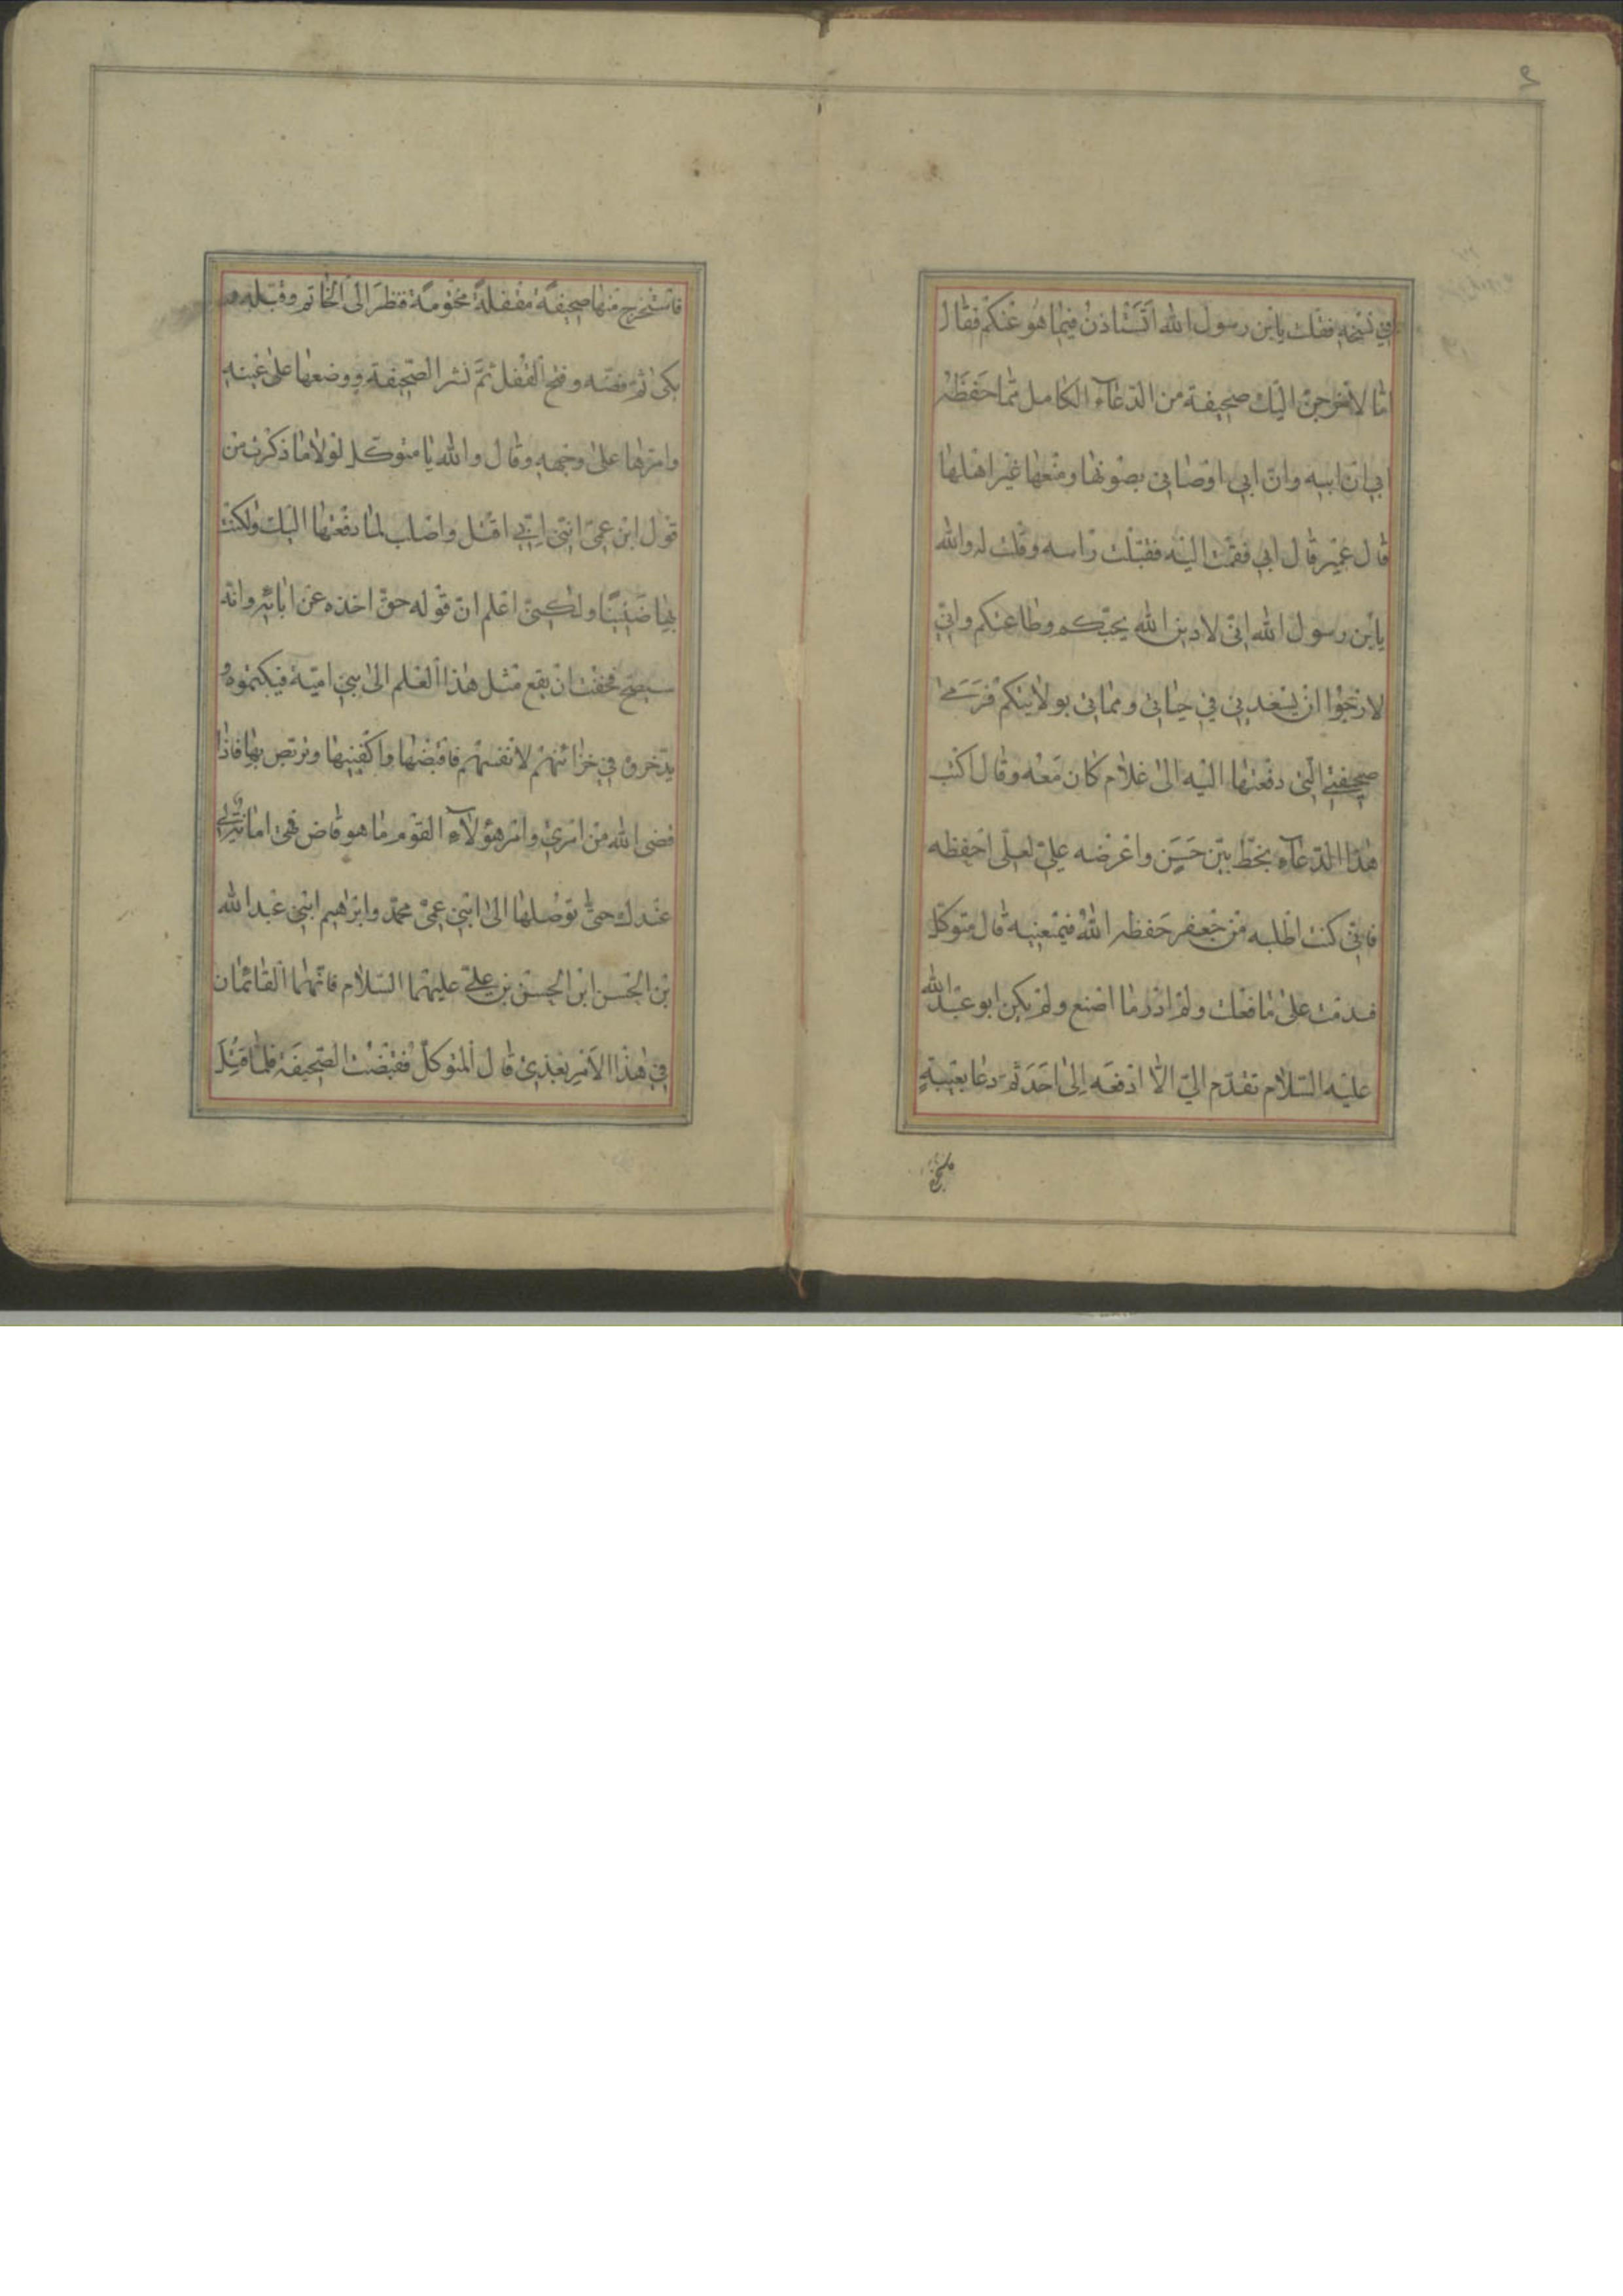 في نسخه فقلت يابن رسول الله اتستاذن فيما هو عنكم فقال
اما لاخرجن اليك صحيفة من الدعآء الكامل مما حفظه
ابي ان ابيه وان ابي اوصاني بصونها ومنعها غير اهلها
قال عمير قال ابي فقمت اليه فقبلت راسه وقلت له والله
يابن رسول الله اني لادين الله بحبكم وطاعتكم واني
لارجوا ان يسعدني في حياتي ومماتي بولايتكم فرمى
صحيفتي التي دفعتها اليه الى غلام كان معه وقال اكتب
هذا الدعآء بخط بين حسن واعرضه علي لعلى احفظه
فاني كنت اطلبه من جعفر حفظه الله فيمنعنيه قال متوكل
فندمت على ما فعلت ولم ادر ما اصنع ولم يكن ابو عبد الله
عليه السلام تقدم الي الا ادفعه الى احد ثم دعا بعيبة
فاستخرج منها صحيفة مقفلة مختومة فنظر الى الخاتم وقبله و
بكى ثم فضه وفتح القفل ثم نشر الصحيفة ووضعها على عينه
وامرها على وجهه وقال والله يا متوكل لولا ما ذكرت من
قول ابن عمي انني اقتل واصلب لما دفعتها اليك ولكنت
بها ضنينا ولكني اعلم ان قوله حق اخذه عن ابائه وانه
سيصح فخفت ان يقع مثل هذا العلم الى بني امية فيكتموه و
يدخروه في خزائنهم لانفسهم فاقبضها واكفنيها وتربص بها فاذا
قضى الله من امري وامر هؤلآء القوم ما هو قاض فهي امانة لي
عندك حتى توصلها الى ابني عمي محمد وابراهيم ابني عبد الله
بن الحسن ابن الحسن بن علي عليهما السلام فانهما القائمان
في هذا الامر بعدي قال المتوكل فقبضت الصحيفة فلما قتل